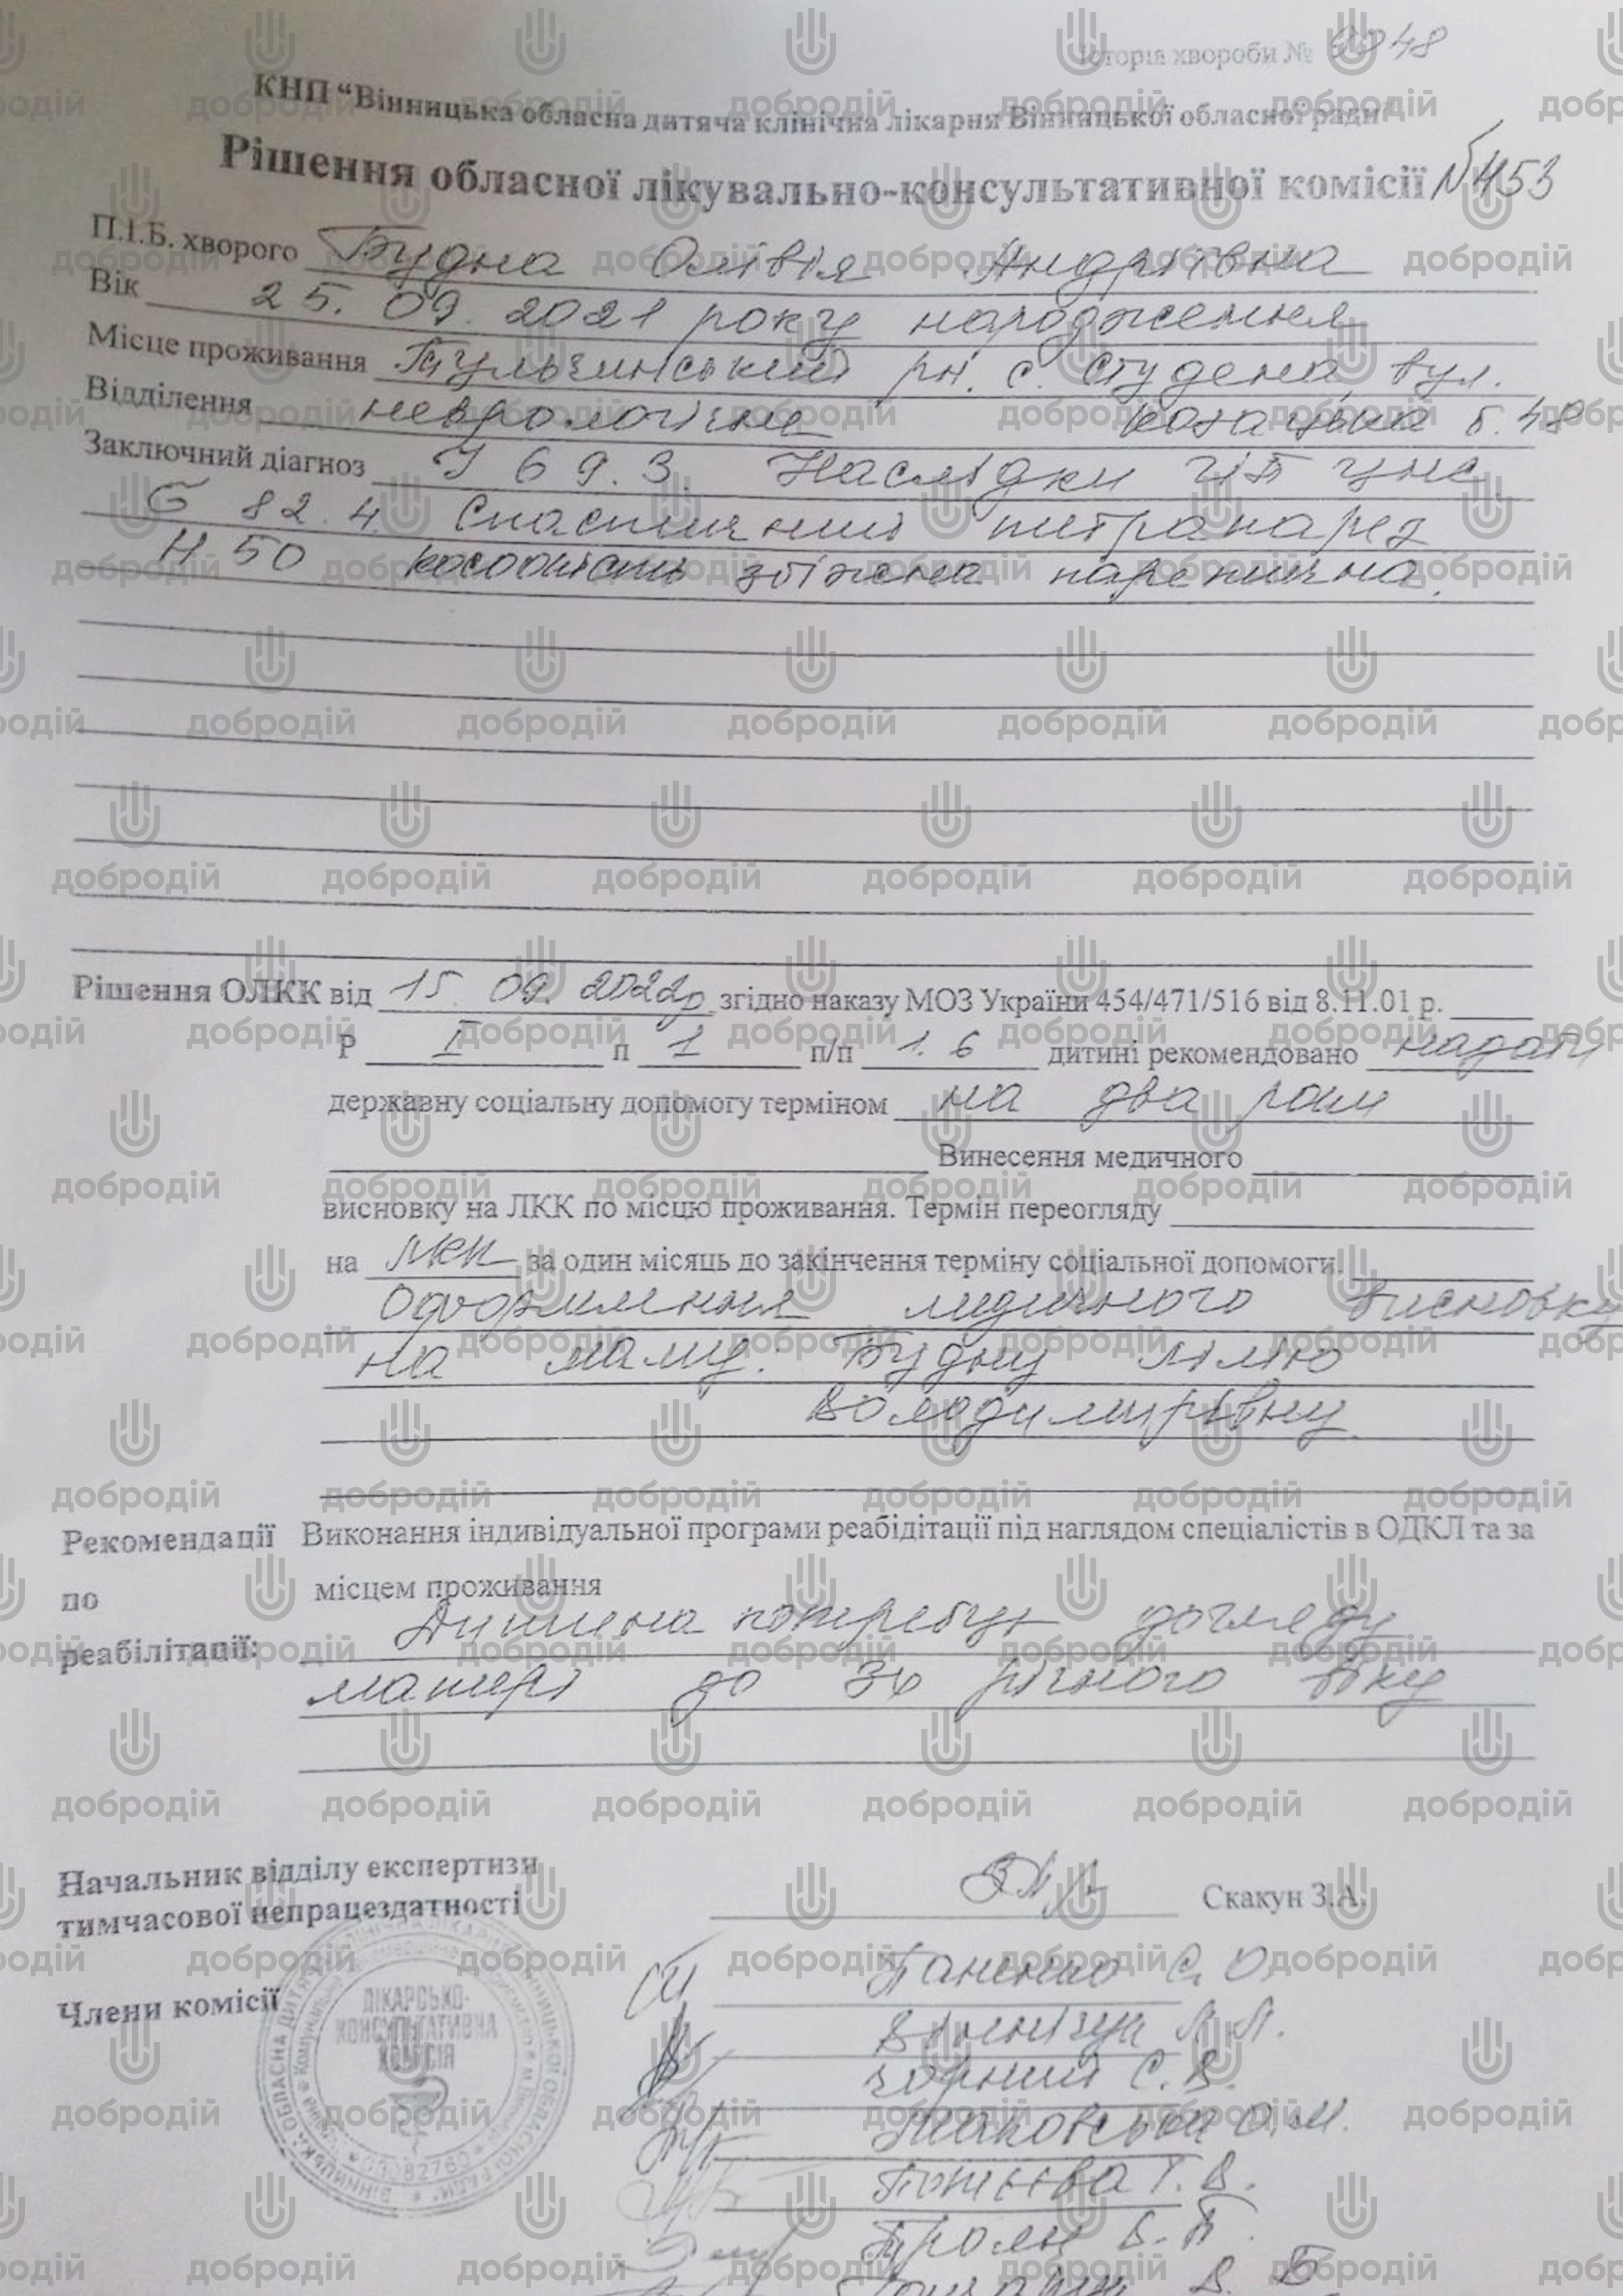 Історія хвороби № 9948
КНП “Вінницька обласна дитяча клінічна лікарня Вінницької обласної ради”
Рішення обласної лікувально-консультативної комісії №1153
П.І.Б. хворого Будна Олівія Андріївна
Вік 25. 09. 2021 року народження
Місце проживання Тульчинський рн. с. Студена, вул.
Відділення неврологічне Козацька б. 48
Заключний діагноз I 69.3. Наслідки ГІП ЦНС.
G 82.4. Спастичний тетрапарез
H 50 косоокість збіжна паретична.
Рішення ОЛКК від 15. 09. 2022р згідно наказу МОЗ України 454/471/516 від 8.11.01 р.
Р I п 1 п/п 1.6 дитині рекомендовано надати
державну соціальну допомогу терміном на два роки
Винесення медичного
висновку на ЛКК по місцю проживання. Термін переогляду
на ЛКК за один місяць до закінчення терміну соціальної допомоги.
Оформлення медичного висновку
на маму: Будну Лілію
Володимирівну
Рекомендації по реабілітації:
Виконання індивідуальної програми реабідітації під наглядом спеціалістів в ОДКЛ та за
місцем проживання
Дитина потребує догляду
матері до 3х річного віку
Начальник відділу експертизи
тимчасової непрацездатності Скакун З.А.
Члени комісії
ЛІКАРСЬКО-
КОНСУЛЬТАТИВНА
КОМІСІЯ
Паненко С. О.
Чорний С. В.
О.М.
Т. В.
Троян В. П.
В. Б.
добродій